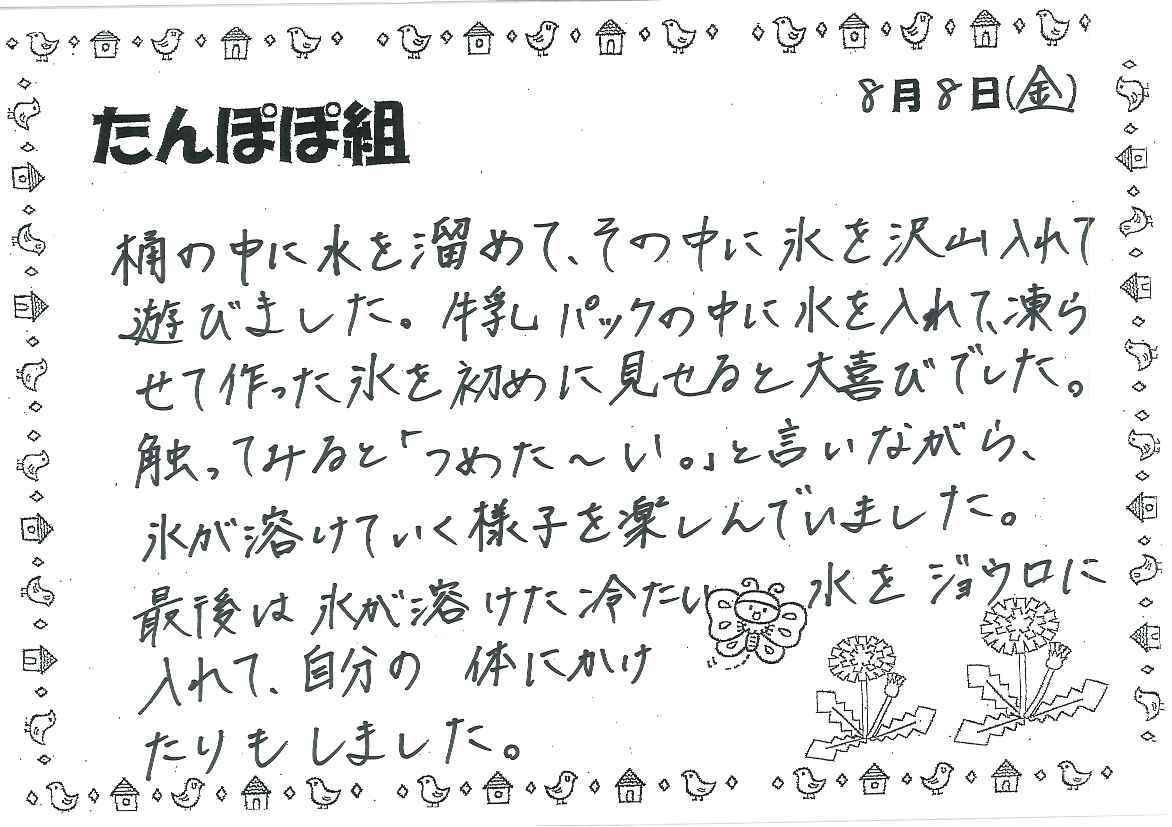 8月8日(金)
たんぽぽ組
桶の中に水を溜めて、その中に氷を沢山入れて
遊びました。牛乳パックの中に水を入れて、凍ら
せて作った氷を初めに見せると大喜びでした。
触ってみると「つめた〜い。」と言いながら、
氷が溶けていく様子を楽しんでいました。
最後は氷が溶けた冷たい水をジョウロに
入れて、自分の体にかけ
たりもしました。